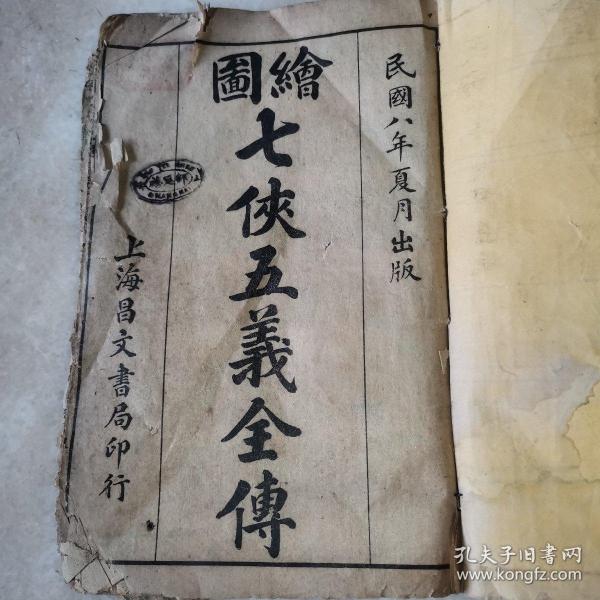 民國八年夏月出版
繪圖
七俠五義全傳
上海昌文書局印行
孔夫子旧書网
www.kongfz.com